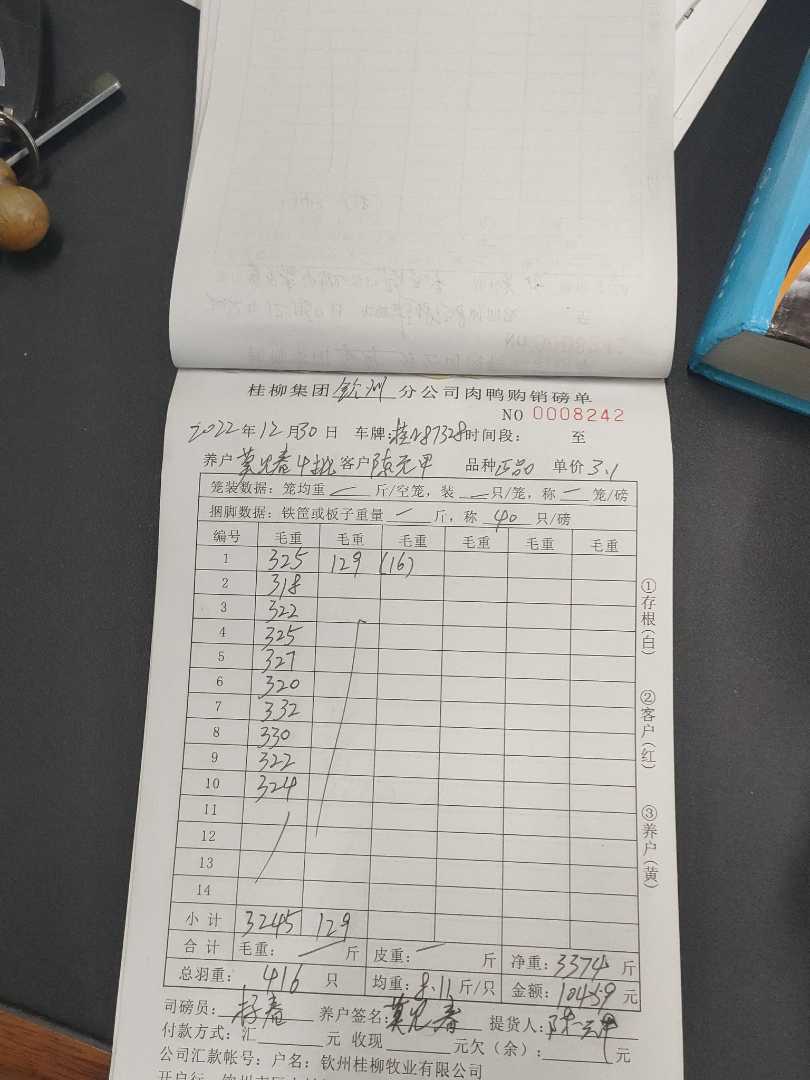 桂柳集团 钦州 分公司肉鸭购销磅单
NO 0008242
2022年12月30日 车牌:桂 87328 时间段: 至
养户 莫 春 4批 客户 陈元甲 品种 正品 单价 3.1
笼装数据:笼均重 — 斤/空笼,装 — 只/笼,称 — 笼/磅
捆脚数据:铁筐或板子重量 — 斤,称 40 只/磅
编号 毛重 毛重 毛重 毛重 毛重 毛重
1 325 129 (16)
2 318
3 322
4 325
5 327
6 320
7 332
8 330
9 322
10 324
11
12
13
14
小计 3245 129
合计 毛重: — 斤 皮重: — 斤 净重:3374 斤
总羽重: 416 只 均重:8.11 斤/只 金额:10459 元
司磅员: 春 养户签名:莫 春 提货人:陈元甲
付款方式:汇 元 收现 元欠(余): 元
公司汇款帐号:户名:钦州桂柳牧业有限公司
①存根(白)
②客户(红)
③养户(黄)